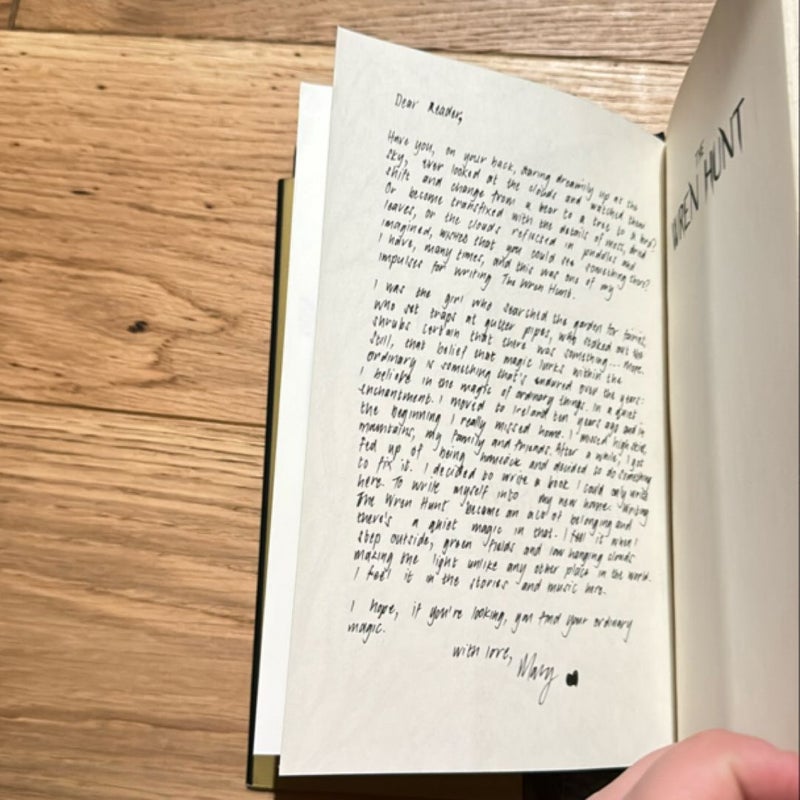 Dear Reader,
Have you, on your back, staring dreamily up at the
sky, ever looked at the clouds and watched them
shift and change from a bear to a tree to a bird?
Or become transfixed with the details of moss, dried
leaves, or the clouds reflected in puddles and
imagined, wished that you could see something there?
I have, many times, and this was one of my
impulses for writing The Wren Hunt.
I was the girl who searched the garden for fairies,
who set traps at gutter pipes, who staked out the
shrubs certain that there was something... more.
Still, that belief that magic lurks within the
ordinary is something that's endured over the years:
I believe in the magic of ordinary things. In a quiet
enchantment. I moved to Ireland ten years ago and in
the beginning I really missed home. I missed high skies,
mountains, my family and friends. After a while, I got
fed up of being homesick and decided to do something
to fix it. I decided to write a book I could only write
here. To write myself into my new home. Writing
The Wren Hunt became an act of belonging and
there's a quiet magic in that. I feel it when I
step outside, green fields and low hanging clouds
making the light unlike any other place in the world.
I feel it in the stories and music here.
I hope, if you're looking, you find your ordinary
magic.
with love,
Mary
THE
WREN HUNT